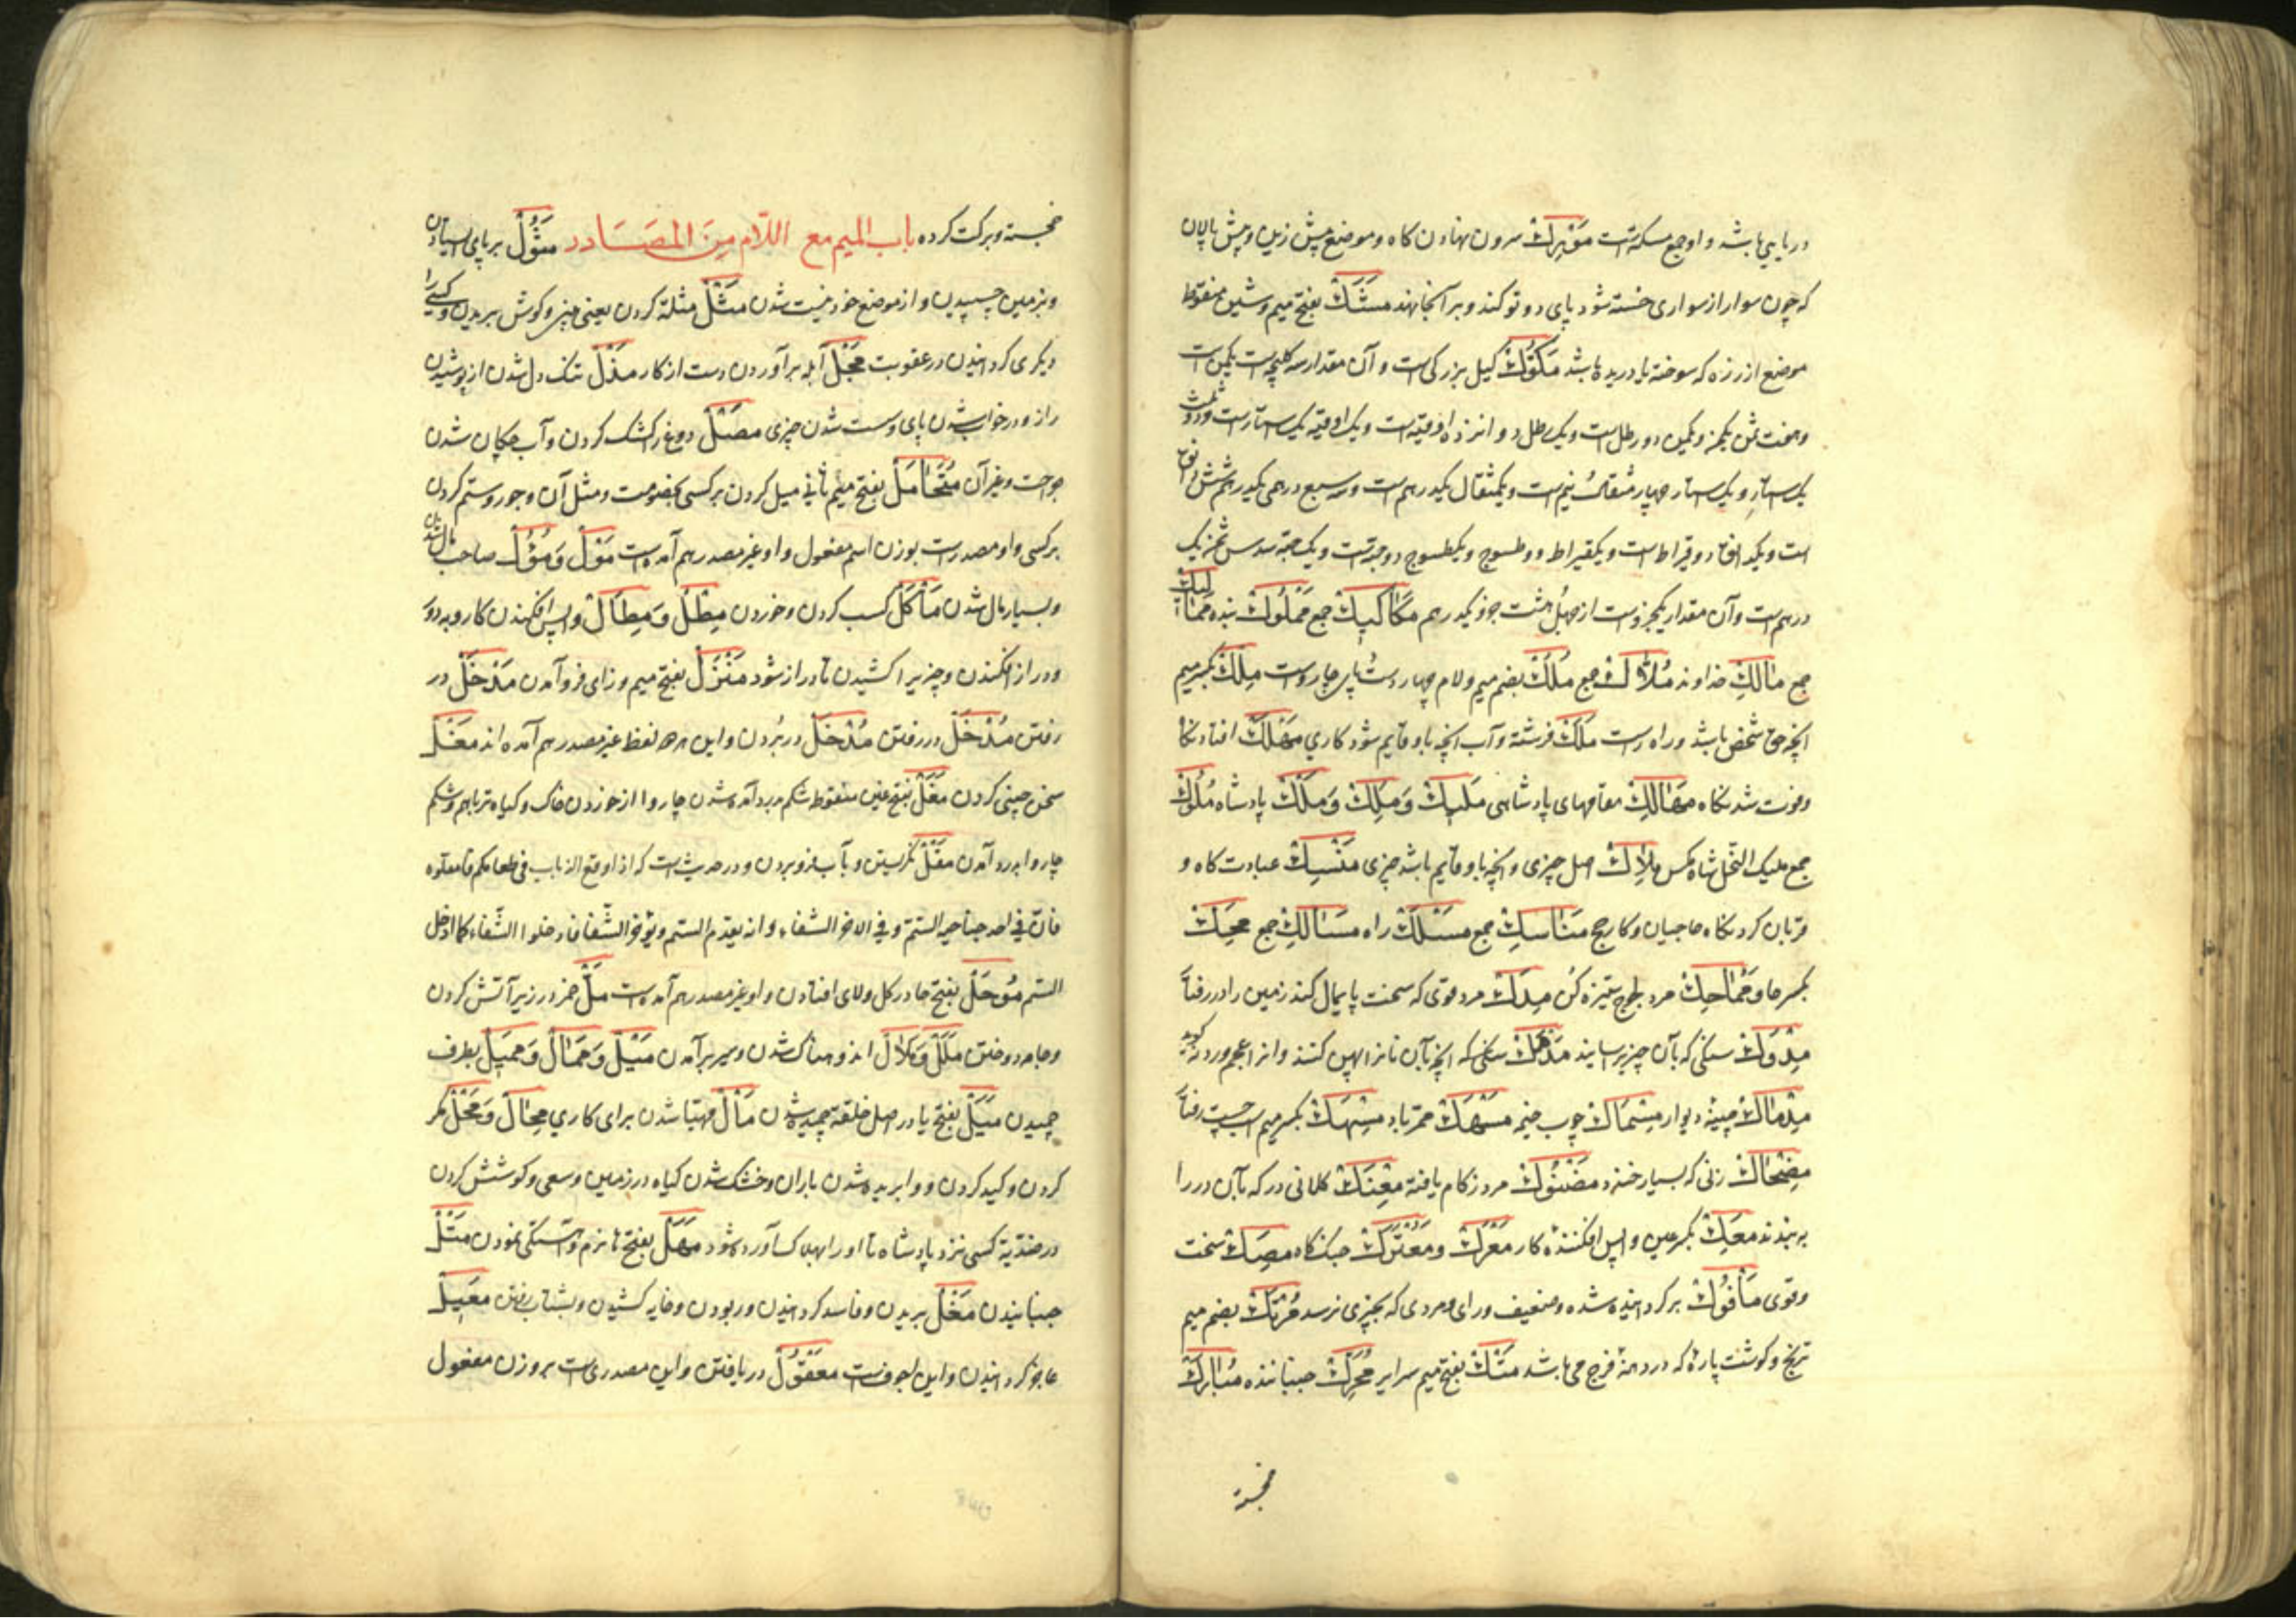 در یابی باشد و او جمع مسکه است مَوْرِک سرون نهادن گاه و موضع پیش زین و پیش پالان
که چون سوار از سواری خسته شود پای دو تو کند و بر آنجا نهد مَشَک بفتح میم و شین منقوط
موضع از رزه که سوخته یا دریده باشد مَکُّوک کیل بزرکی است و آن مقدار سه کلیچه است یکمن است
وهفت ثمن یکمن و یکمن دو رطل است و یک رطل دوانزده اوقیه است و یک اوقیه یک استار است و دو ثلث
یک استار و یک استار چهار مثقال و نیم است و یکمثقال یکدرهم است و سه سبع درهمی یکدرهم شش دانق
است و یکدانق دو قیراط است و یکقیراط دو طسوج و یکطسوج دو حبه است و یک حبه سدس ثمن یک
درهم است و آن مقدار یکجزوست از چهل و هشت جزو یکدرهم مَکَاکِیک جمع مَمْلُوک بنده مَمَالِیک
جمع مَالِک خداوند مُلَّاک جمع مُلُک بضم میم و لام چهار دست و پای چارواست مِلک بکسر میم
آنچه حق شخص باشد و راه راست مَلَک فرشته و آب آنچه باو قایم شود کاری مَهْلَک افتادنکاه
و فوت شدنکاه مَهَالِک مقامهای پادشاهی مَلِیک وَمَلِک وَمَلْک پادشاه مُلُوک
جمع ملیک النّحل شاه مکس مِلَاک اصل چیزی و آنچه باو قایم باشد چیزی مَنْسِک عبادت کاه و
قربان کردنکاه حاجیان و کار حج مَنَاسِک جمع مَسْلَک راه مَسَالِک جمع مَحِک
بکسر حا و مُمَاحِک مرد لجوج ستیزه کن مِدَک مرد قوی که سخت پایمال کند زمین را در رفتن
مِدْوَک سنکی که بآن چیز بر سایند مَدْهَک سنکی که آنچه بآن نانرا پهن کنند و انرا عجم وردنه کویند
مِدْمَاک چینهٔ دیوار مِسْمَاک چوب خیمه مَسْهَک ممر باد مِسْهَک بکسر میم اسب چست رفتار
مِضْحَاک زنی که بسیار خندد مَضْنُوک مرد زکام یافته مِعْنَک کلانی در که بآن در را
به بندند مَعِک بکسر عین واپس افکنندهٔ کار مَعْرَک و مُعْتَرَک جنک کاه مِصَک سخت
و قوی مَأْفُوک بر کردانیده شده و ضعیف و رای و مردی که بچیزی نرسد مُتْک بضم میم
ترنج و کوشت پاره که در دهنهٔ فرج می باشد مَتْک بفتح میم سرایر مُحَرِّک جنباننده مُبَارَک
خجسته
خجسته و برکت کرده باب المیم مع اللّام مِنَ المَصَادر مُثُوْل بر پای ایستادن
و بزمین چسپیدن و از موضع خود نیست شدن مَثْل مثله کردن یعنی بینی و کوش بریدن و کسی را
دیکری کردانیدن در عقوبت مَجْل آبله بر آوردن دست از کار مَذْل تنک دل شدن از پوشیدن
راز و در خواب شدن پای و سست شدن چیزی مَصْل دوغ را کشک کردن و آب چکان شدن
جراحت و غیر آن مُتَحَامَل بفتح میم ثانی میل کردن بر کسی بخصومت و مثل آن و جور و ستم کردن
بر کسی و او مصدرست بوزن اسم مفعول و او غیر مصدر هم آمده است مَوْل وَ مُوُل صاحب مال شدن
و بسیار مال شدن مَأْکَل کسب کردن و خوردن مَطْل وَمِطَال واپس افکندن کار و بدور
و دراز افکندن و چیزیرا کشیدن تا دراز شود مَنْزَل بفتح میم و زای فرو آمدن مَدْخَل در
رفتن مُدْخَل در رفتن مُدْخَل در بردن و این هر سه لفظ غیر مصدر هم آمده اند مَغْل
سخن چینی کردن مَغَل بفتح غین منقوط شکم بدرد آمده شدن چاروا از خوردن خاک و کیاه تر باهم و شکم
چاروا بدرد آمدن مَقْل نکریستن و بآب فرو بردن و در حدیث است که اذا وقع الذباب فی طعامکم فامقلوه
فانّ فی احد جناحیه السّم و فی الاخر الشفاء و انه یقدم السّم و یؤخر الشّفا فادخلوا الشّفاء کما ادخل
السّم مُوحَل بفتح حا در کل و لای افتادن و او غیر مصدر هم آمده است مَلّ خمیر در زیر آتش کردن
و جامه دوختن مَلَل وَمَلَال اندوهناک شدن و سیر بر آمدن مَیْل وَمَمَال وَمَمِیل بطرف
چمیدن مَیَل بفتح یا در اصل خلقه چمیده شدن مَأْل مهیّا شدن برای کاری مِحَال وَمَحْل مکر
کردن و کید کردن و وا بریده شدن باران و خشک شدن کیاه در زمین و سعی و کوشش کردن
در ضدّیة کسی نزد پادشاه تا او را بهلاک آورده شود مَهَل بفتح ها نزم و آهستکی نمودن مَتْل
جنبانیدن مَغْل بریدن و فاسد کردانیدن و ربودن و خایه کشیدن و بشتاب رفتن مَعِیل
عاجز کردانیدن و این اجوفست مَعْقُول دریافتن و این مصدری است بر وزن مفعول